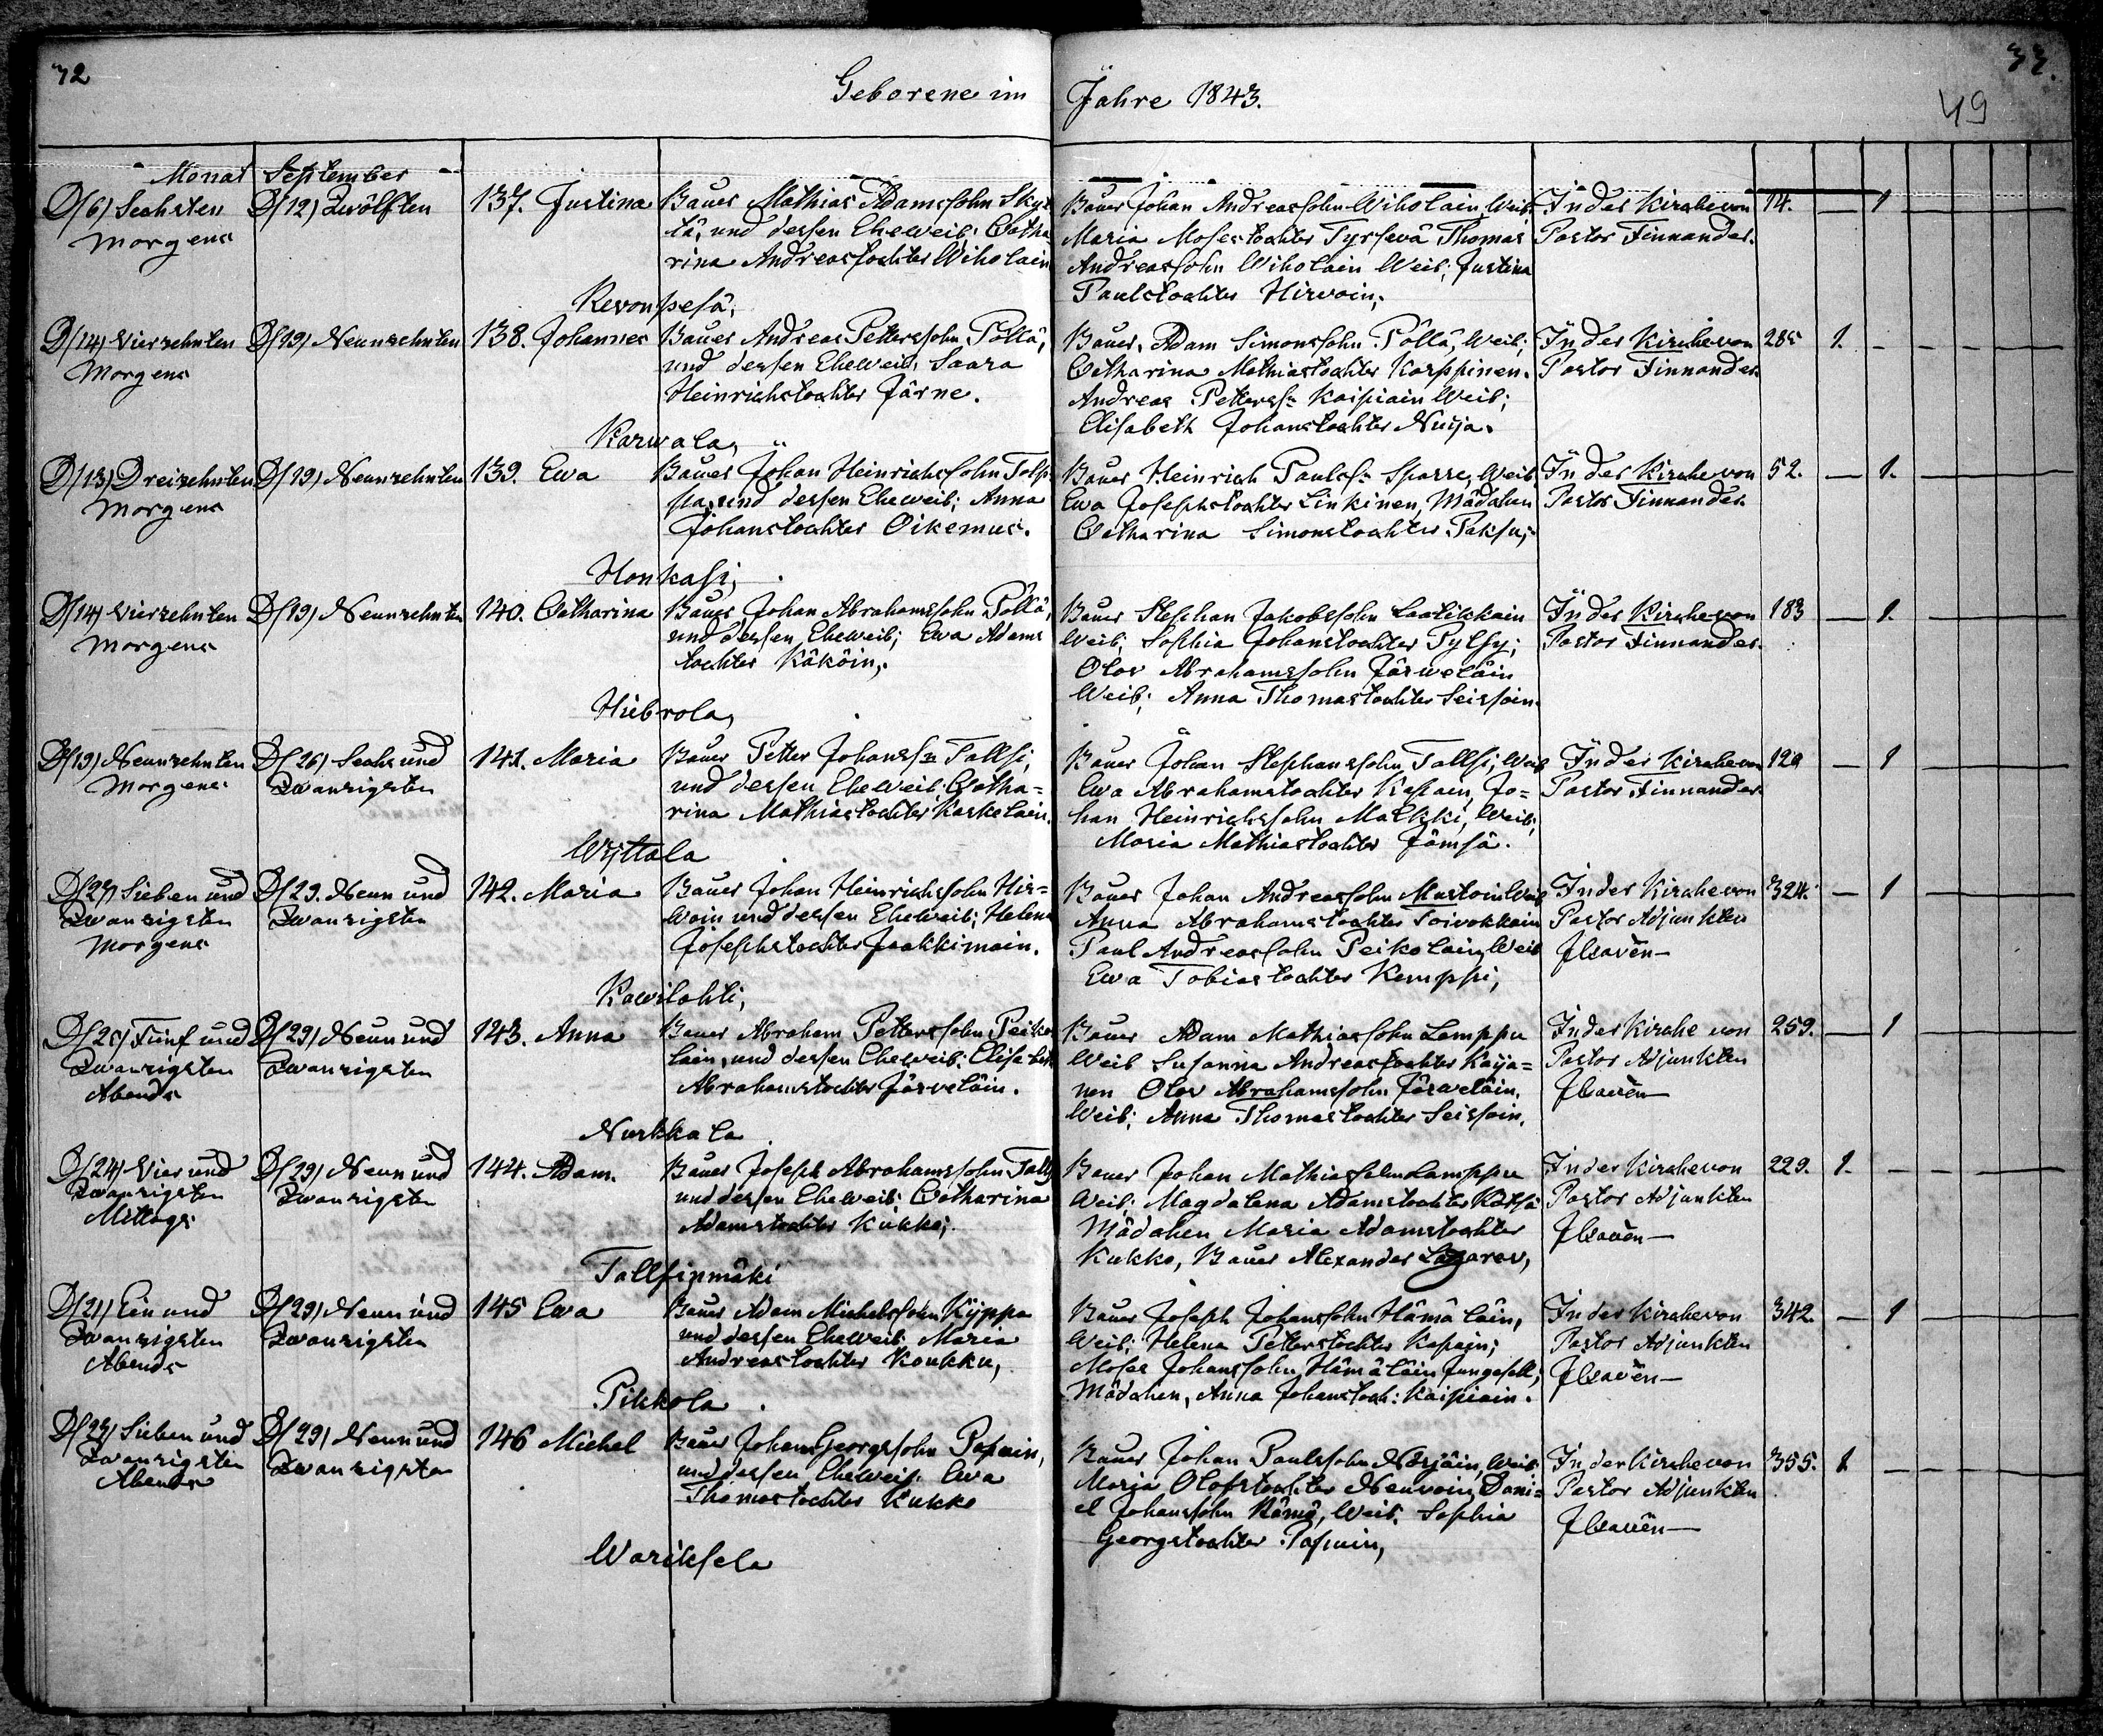 32
33.
49
Geborene im Jahre 1843.
Monat September
D/6/ Sechsten
Morgens
D/12/ Zwölften
137. Justina
Bauer Mathias Adamssohn Skyt
tä, und dessen Eheweib; Catha
rina Andreastochter Wiholain
Revonpesä,
Bauer Johan Andreassohn Wiholain, Weib
Maria Mosestochter Tyrsevä Thomas
Andreassohn Wiholain Weib; Justina
Paulstochter Hirvoin,
In der Kirche von
Pastor Finnander.
14. — 1 —
D/14/ Vierzehnten
Morgens
D/19/ Neunzehnten
138. Johannes
Bauer Andreas Petterssohn Pöllä,
und dessen Eheweib, Saara
Heinrichstochter Järne.
Karwala,
Bauer, Adam Simonssohn Pöllä, Weib;
Catharina Mathiastochter Karppinen.
Andreas Petterss:n Kaipiain Weib;
Elisabeth Johanstochter Nuija.
In der Kirche von
Pastor Finnander.
285 1. — — — —
D/13/ Dreizehnten
Morgens
D/19/ Neunzehnten
139. Ewa
Bauer Johan Heinrichssohn
und dessen Eheweib; Anna
Johanstochter Oikemus.
Honkasi;
Bauer Heinrich Paulss:n Sparre, Weib
Ewa Josephstochter Linkinen, Mädchen
Catharina Simonstochter Paksu;
In der Kirche von
Pastor Finnander.
52. — 1. —
D/14/ Vierzehnten
Morgens
D/19/ Neunzehnten
140. Catharina
Bauer Johan Abrahamssohn Pöllä,
und dessen Eheweib; Ewa Adams
tochter Käköin,
Hiebrola,
Bauer Stephan Jakobssohn Laatikkain
Weib; Sophia Johanstochter Pylsy;
Olov Abrahamssohn Järweläin
Weib; Anna Thomastochter Seissoin.
In der Kirche von
Pastor Finnander.
183 — 1. —
D/19/ Neunzehnten
Morgens
D/26/ Sechs und
Zwanzigsten
141. Maria
Bauer Petter Johanss:n Tallsi,
und dessen Eheweib; Catha=
rina Mathiastochter Karkelain.
Wijttala
Bauer Johan Stephanssohn Tallsi; Weib
Ewa Abrahamstochter Kapain, Jo=
han Heinrichssohn Malkki, Weib;
Maria Mathiastochter Jämsä.
In der Kirche von
Pastor Finnander
129 — 1 —
D/27/ Sieben und
Zwanzigsten
Morgens
D/29. Neun und
Zwanzigsten
142. Maria
Bauer Johan Heinrichssohn Hir=
woin und dessen Eheweib; Helena
Josephstochter Jaakkimain.
Kawilahti,
Bauer Johan Andreassohn Mustoin Weib
Anna Abrahamstochter Toivokkain
Paul Andreassohn Peikolain, Weib
Ewa Tobiastochter Kemppi;
In der Kirche von
Pastor Adjunkten
324. — 1 —
D/25/ Fünf und
Zwanzigsten
Abends
D/29/ Neun und
Zwanzigsten
143. Anna
Bauer Abraham Petterssohn Peiko
lain, und dessen Eheweib: Elisabet
Abrahamstochter Järveläin.
Nurkkala
Bauer Adam Mathiassohn Lamppu
Weib Susanna Andreastochter Kaija=
nen Olov Abrahamssohn Järweläin,
Weib; Anna Thomastochter Seissoin,
In der Kirche von
Pastor Adjunkten
259. — 1 —
D/24/ Vier und
Zwanzigsten
Mittags
D/29/ Neun und
Zwanzigsten
144. Adam.
Bauer Joseph Abrahamssohn Talls
und dessen Eheweib; Catharina
Adamstochter Kukko;
Tallsinmäki
Bauer Johan Mathiassohn Lamppu
Weib; Magdalena Adamstochter
Mädchen Maria Adamstochter
Kukko, Bauer Alexander Lazarev,
In der Kirche von
Pastor Adjunkten
229. 1. — — — —
D/21/ Ein und
Zwanzigsten
Abends
D/29/ Neun und
Zwanzigsten
145 Ewa
Bauer Adam Michelssohn Kyppa
und dessen Eheweib: Maria
Andreastochter Koukku,
Pikkola
Bauer Joseph Johanssohn Hämäläin,
Weib; Helena Petterstochter Kapain;
Moses Johanssohn Hämäläin Jungesell;
Mädchen, Anna Johanstoch: Kaipiain.
In der Kirche von
Pastor Adjunkten
342. — 1 —
D/27/ Sieben und
Zwanzigsten
Abends
D/29/ Neun und
Zwanzigsten
146 Michel
Bauer Johan Georgssohn Papuin,
und dessen Eheweib. Ewa
Thomastochter Kukko
Wariksela
Bauer Johan Paulssohn Weib
Maria Olofstochter Neuvoin, Dani=
el Johanssohn Rämä, Weib. Sophia
Georgstochter Papuin,
In der Kirche von
Pastor Adjunkten
355. 1 — — — —